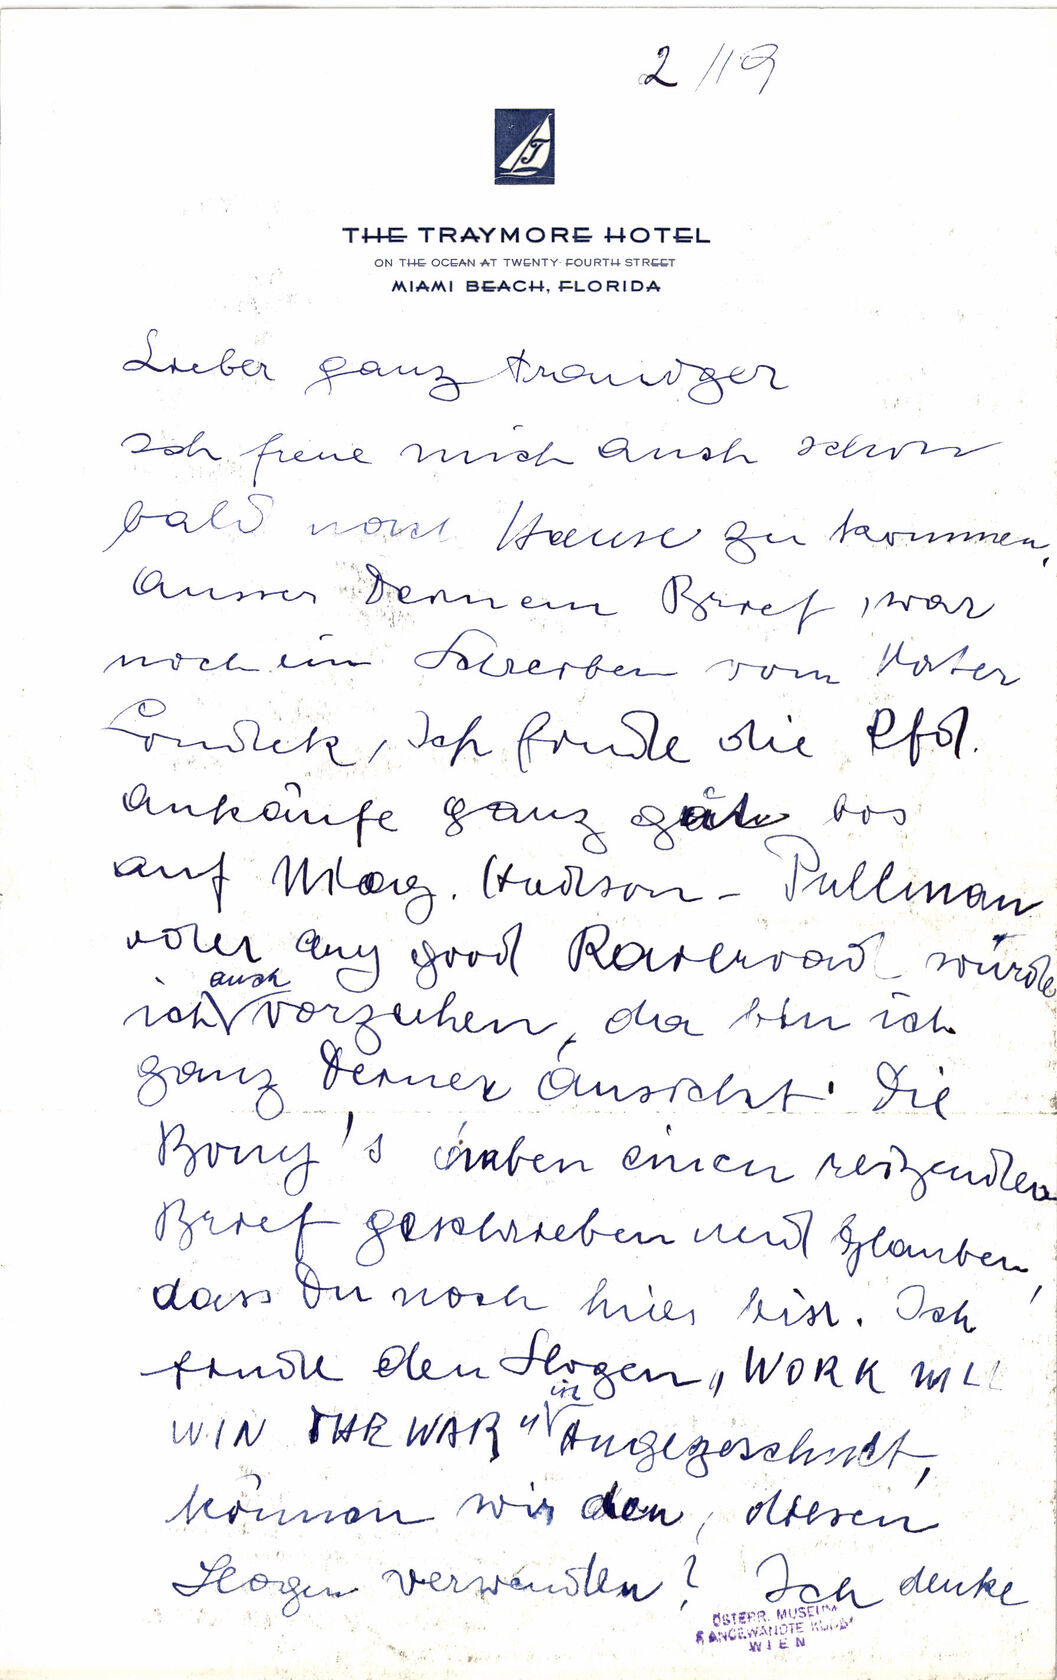 2/19
T
THE TRAYMORE HOTEL
ON THE OCEAN AT TWENTY-FOURTH STREET
MIAMI BEACH, FLORIDA
Lieber ganz trauriger
Ich freue mich auch schon
bald nach Hause zu kommen.
Ausser Deinem Brief, war
noch ein Schreiben vom Vater
Ich finde die Pfd.
Ankäufe ganz gut bis
auf Mag. Hudson - Pullman
oder any good Raielroad würde
ich auch vorziehen, da bin ich
ganz Deiner Ansicht. Die
Bony's haben einen reizenden
Brief geschrieben und glauben,
dass Du noch hier bist. Ich
finde den Slogen „WORK WILL
WIN THE WAR" ist
können wir den, diesen
Slogen verwenden? Ich denke
ÖSTERR. MUSEUM
F. ANGEWANDTE KUNST
WIEN